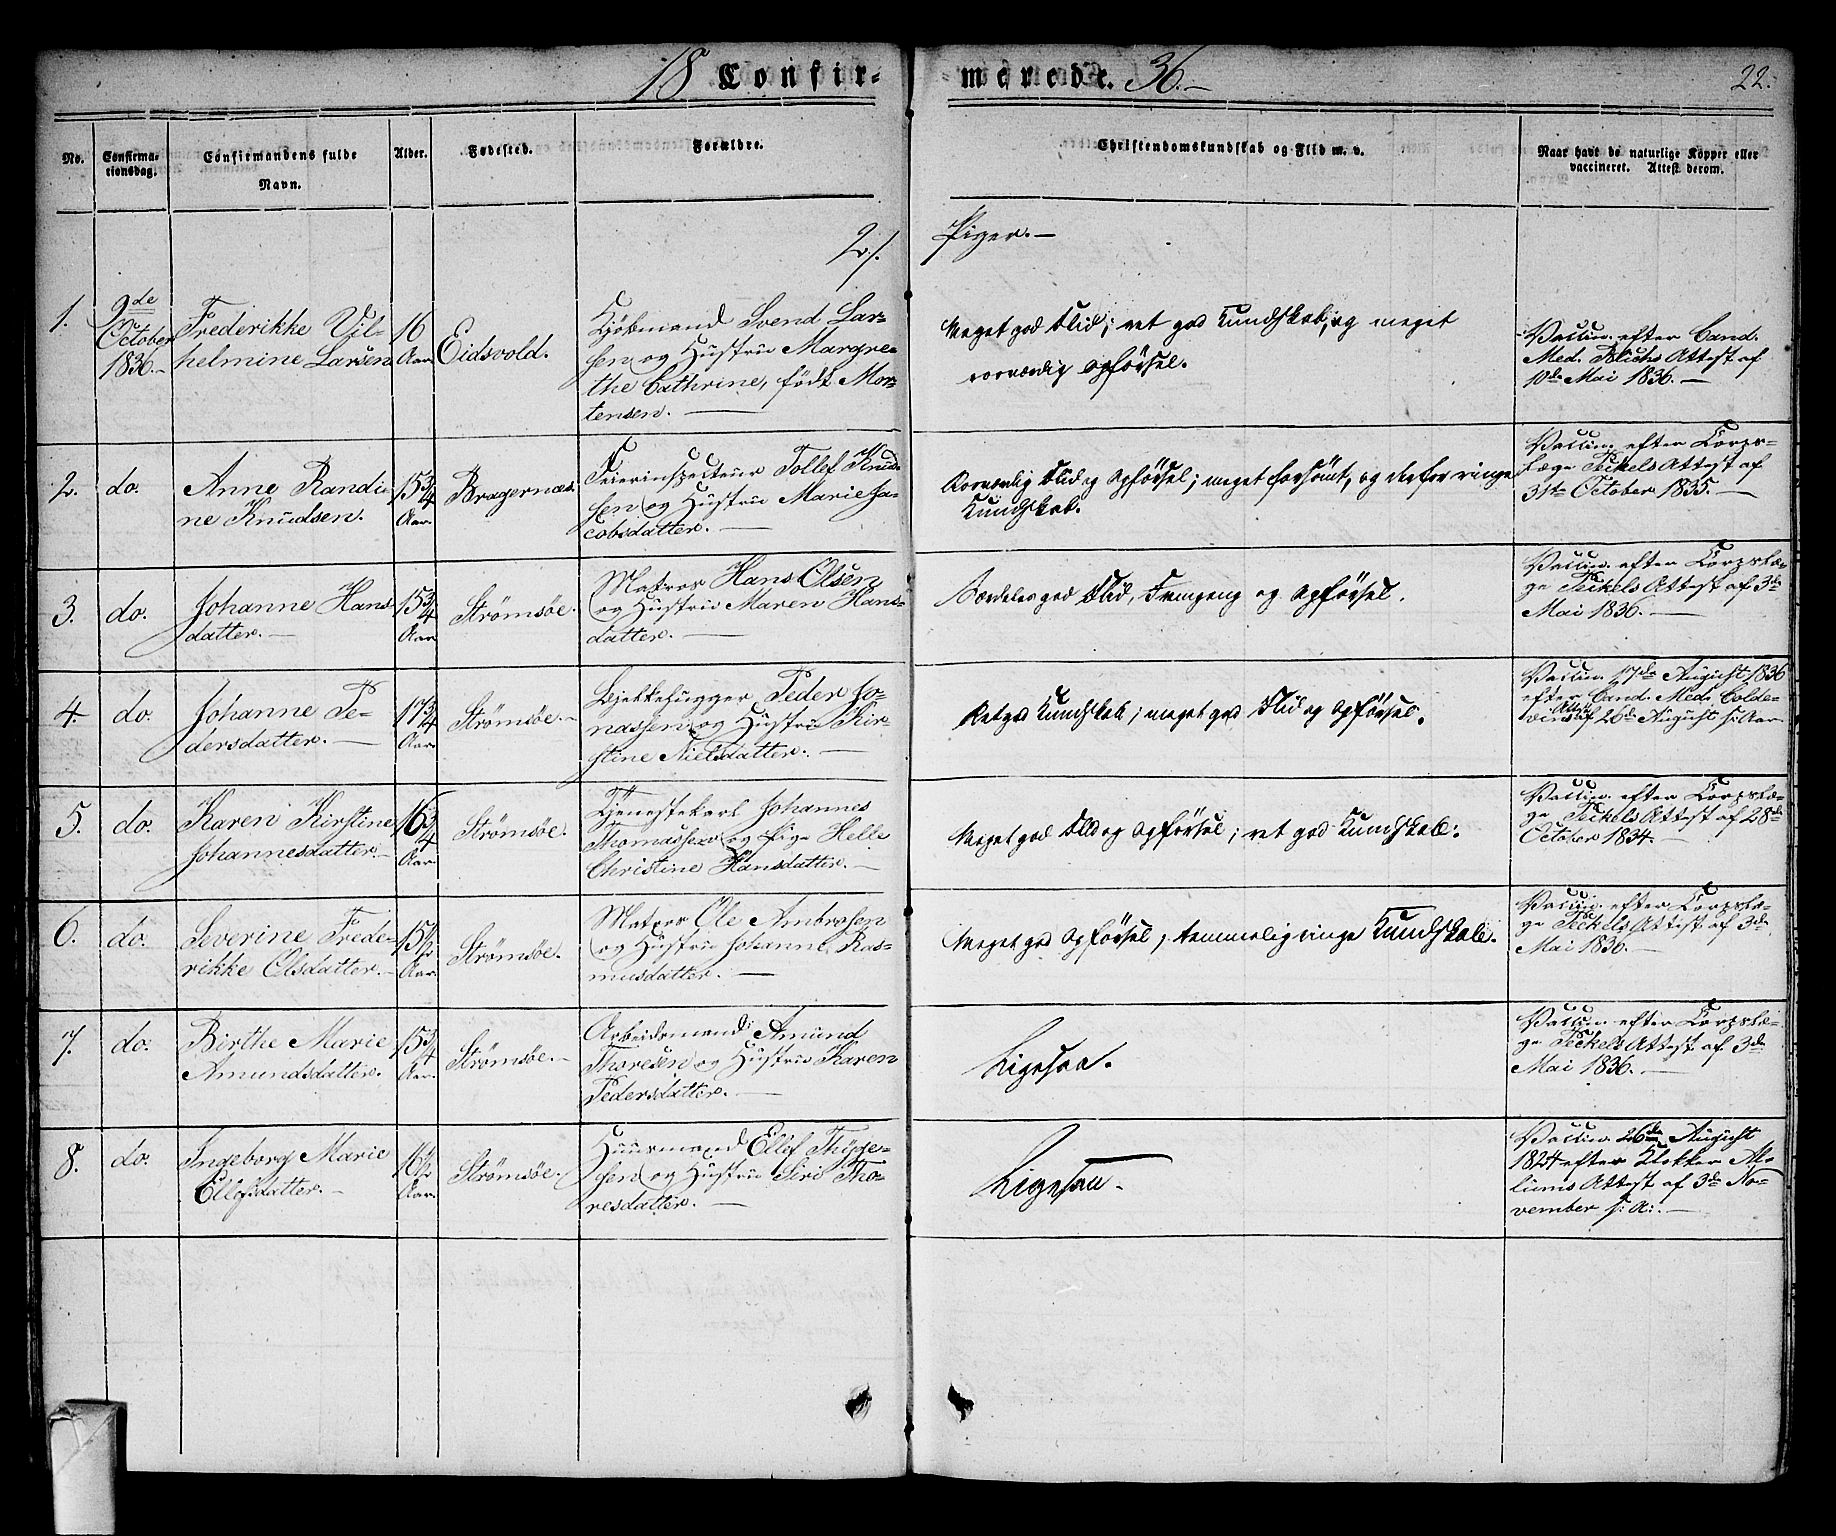 18 Confir-
merede. 36.-
22.
No.
Confirma-
tionsdag.
Confirmandens fulde
Navn.
Alder.
Fødested.
Forældre.
Christendomskundskab og Flid m. v.
Naar havt de naturlige Kopper eller
vaccineret. Attest derom.
2./. Piger.-
1.
9de
October
1836.-
Frederikke Vil-
helmine Larsen
16
Aar
Eidsvold.
Kjøbmand Svend Lar-
sen og Hustru Margre-
the Cathrine, født Mor-
tensen.-
Meget god Flid; ret god Kundskab, og meget
sorvænlig Opførsel.
Vaccin. efter Cand.
Med. Blichs Attest af
10de Mai 1836.-
2.
do.
Anne Randi-
ne Knudsen.
15 3/4
Aar.
Bragernæs.
Feierinspecteur Tollef Knud-
sen og Hustru Marie Ja-
cobsdatter.-
Flid og Opførsel; meget forsømt, og derfor ringe
Kundskab.
Vaccin. efter Corps-
læge Teckels Attest af
31te October 1835.-
3.
do.
Johanne Hans
datter.-
15 3/4
Aar
Strømsøe.
Matros Hans Olsen
og Hustru Maren Hans-
datter.-
Særdeles god Flid, Fremgang og Opførsel.
Vaccin. efter Corpslæ-
ge Teckels Attest af 3de
Mai 1836.-
4.
do.
Johanne Pe-
dersdatter.-
17 3/4
Aar.
Strømsøe.-
Bjelkehugger Peder Jo-
nassen og Hustru Kir-
stine Nielsdatter.-
Ret god Kundskab; meget god Flid og Opførsel.
Vaccin. 17de August 1836
efter Cand. Med. Colde-
vins Attest af 26de August s: Aar.
5.
do.
Karen Kirstine
Johannesdatter.-
16 3/4
Aar.
Strømsøe.
Tjenestekarl Johannes
Thomassen og Pige Helle
Christine Hansdatter.-
Meget god Flid og Opførsel; ret god Kundskab.
Vaccin. efter Corpslæ-
ge Teckels Attest af 28de
October 1834.-
6.
do.
Severine Frede-
rikke Olsdatter.-
15 1/2
Aar.
Strømsøe.
Matros Ole Ambrosen
og Hustru Johanne Ras-
musdatter.-
Meget god Opførsel, temmelig ringe Kundskab.
Vaccin. efter Corpslæ-
ge Teckels Attest af 3de
Mai 1836.-
7.
do.
Birthe Marie
Amundsdatter.
15 3/4
Aar.
Strømsøe.-
Arbeidsmand Amund
Thoresen og Hustru Karen
Pedersdatter.-
Ligesaa.
Vaccin. efter Corpslæ-
ge Teckels Attest af 3de
Mai 1836.-
8.
do.
Ingeborg Marie
Ellefsdatter.-
16 1/2
Aar.
Strømsøe.
Huusmand Ellef Thøge-
sen og Hustru Siri Tho-
resdatter.-
Ligesaa.
Vaccin. 26de August
1824 efter Klokker Mo-
liums Attest af 3de No-
vember s: A:.-